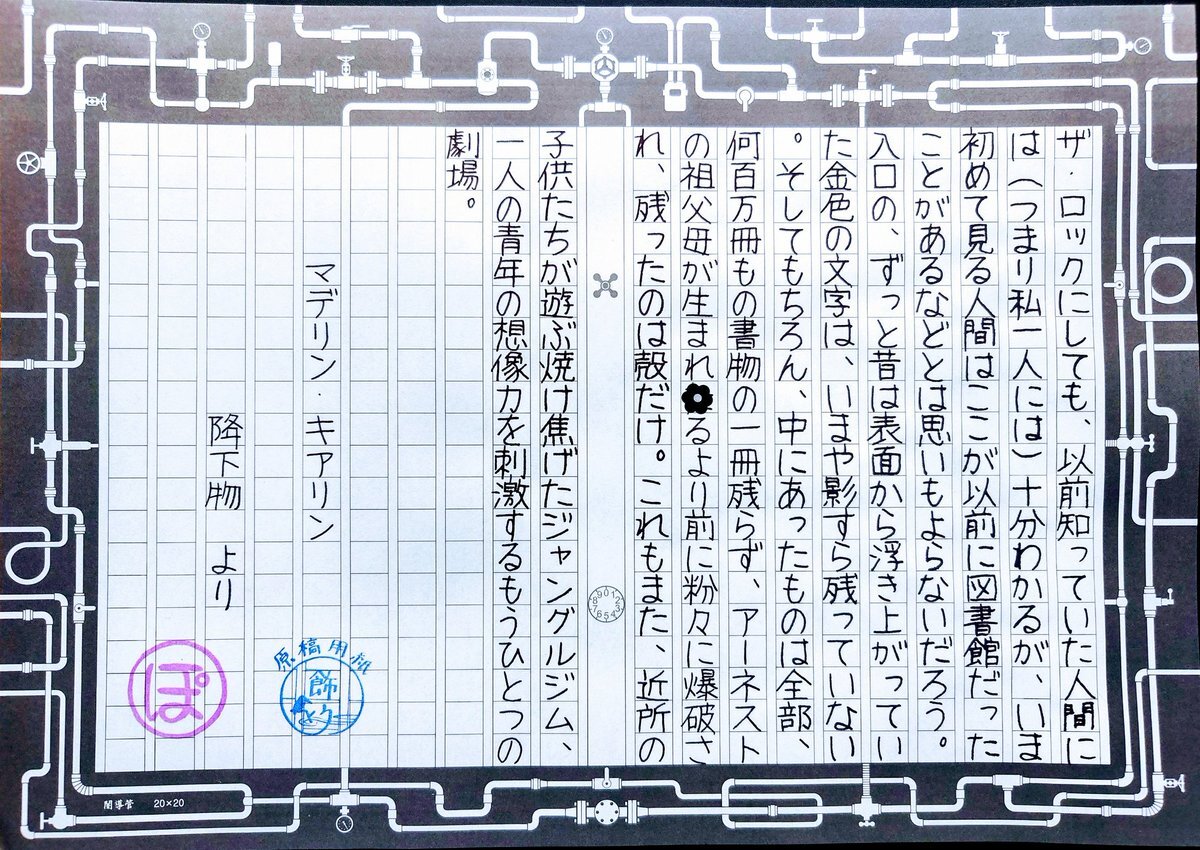 ザ・ロックにしても、以前知っていた人間に
は（つまり私一人には）十分わかるが、いま
初めて見る人間はここが以前に図書館だった
ことがあるなどとは思いもよらないだろう。
入口の、ずっと昔は表面から浮き上がってい
た金色の文字は、いまや影すら残っていない
。そしてもちろん、中にあったものは全部、
何百万冊もの書物の一冊残らず、アーネスト
の祖父母が生まれるより前に粉々に爆破さ
れ、残ったのは殻だけ。これもまた、近所の
子供たちが遊ぶ焼け焦げたジャングルジム、
一人の青年の想像力を刺激するもうひとつの
劇場。
マデリン・キアリン
降下物 より
原稿用紙
飾
ぽ
9012345678
闇導管 20×20